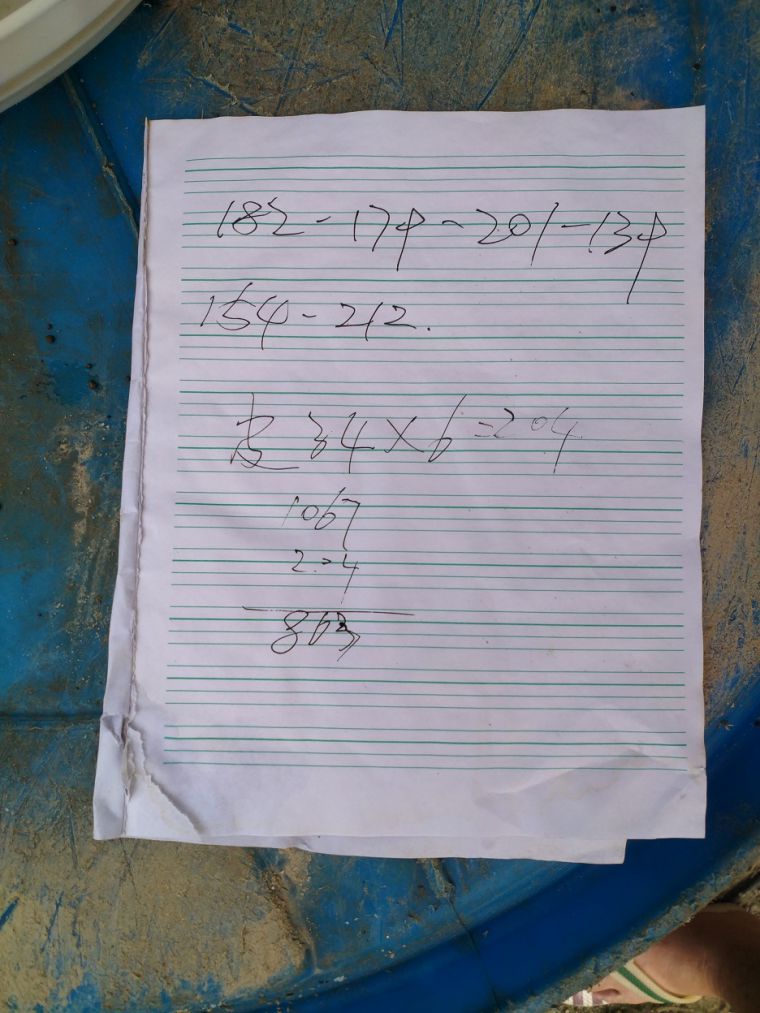 182-179-201-139
154-212.
皮34×6=204
1067
204
863